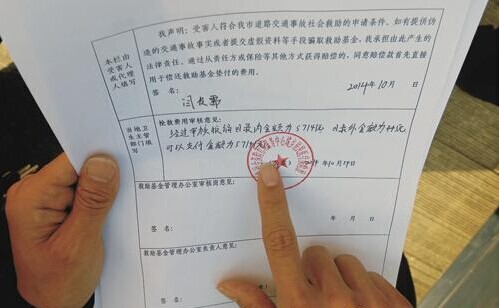 我声明：受害人符合我市道路交通事故社会救助的申请条件。如有提供伪
造的交通事故事实或者提交虚假资料等手段骗取救助基金，我承担由此产生的
法律责任。通过从责任方或保险等其他方式获得赔偿的，同意赔偿款首先直接
用于偿还救助基金垫付的费用。
本栏由
受害人
或代理
人填写
2014年10月 日
当地卫
生主管
部门填
写
抢救费用审核意见：
经过审核
金额为5714元
可以支付金额为5714元
年10月29日
救助基金管理办公室审核岗意见：
签名： 年 月 日
救助基金管理办公室负责人意见：
签名：